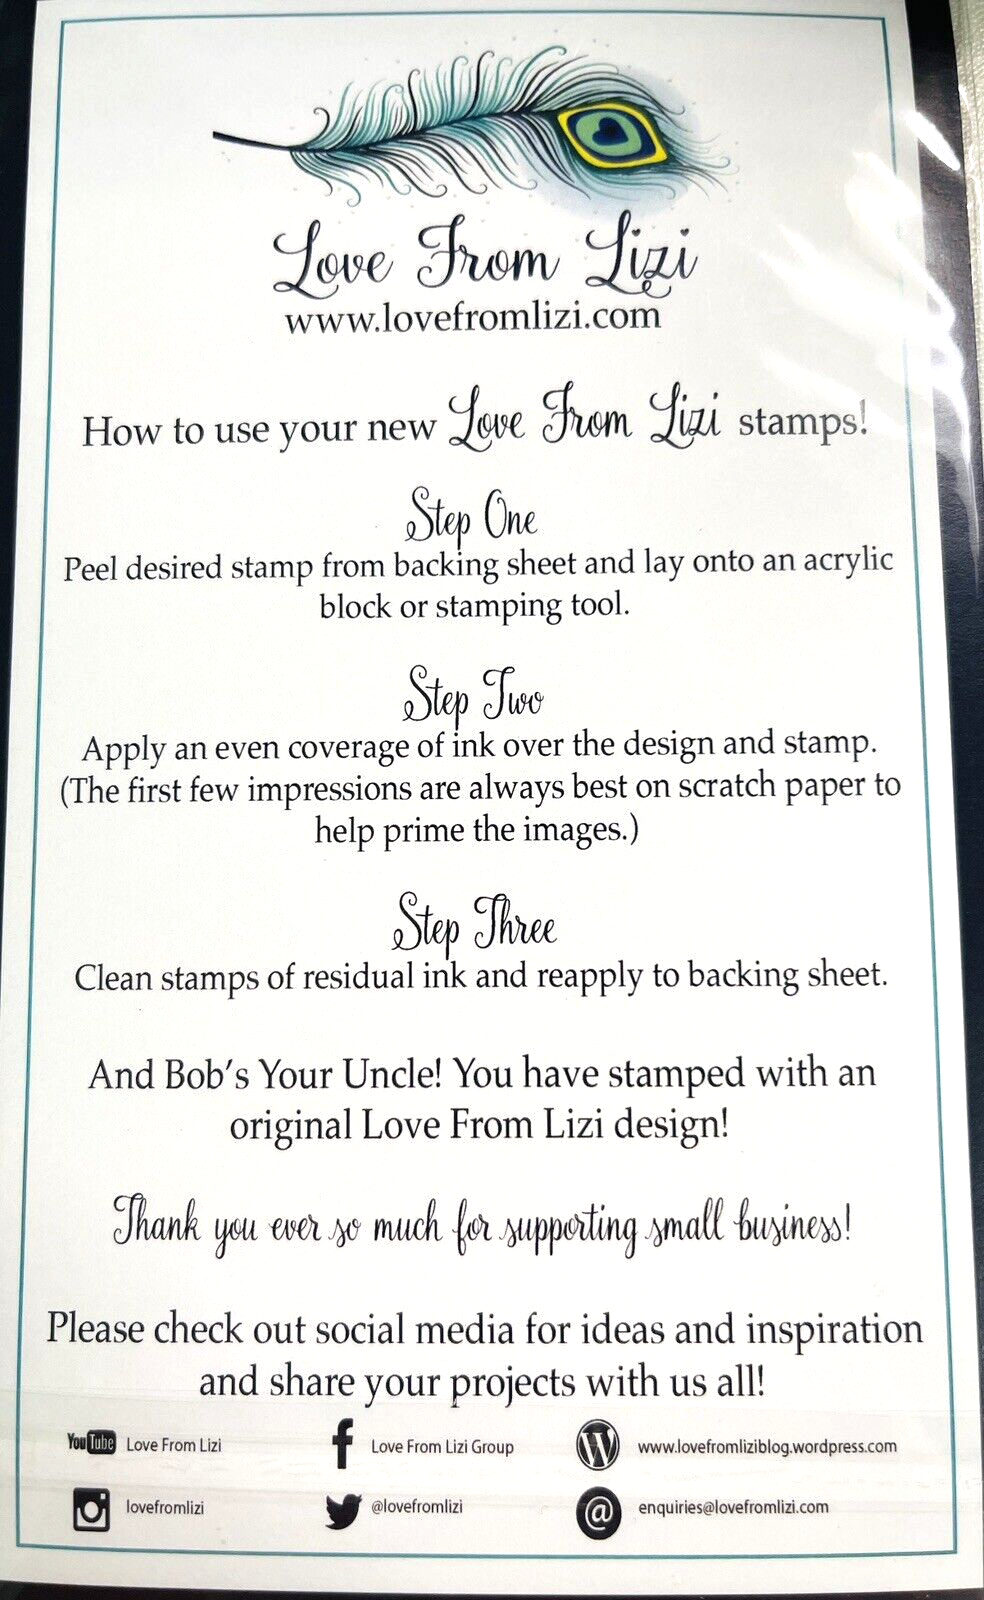 Love From Lizi
www.lovefromlizi.com
How to use your new Love From Lizi stamps!
Step One
Peel desired stamp from backing sheet and lay onto an acrylic
block or stamping tool.
Step Two
Apply an even coverage of ink over the design and stamp.
(The first few impressions are always best on scratch paper to
help prime the images.)
Step Three
Clean stamps of residual ink and reapply to backing sheet.
And Bob's Your Uncle! You have stamped with an
original Love From Lizi design!
Thank you ever so much for supporting small business!
Please check out social media for ideas and inspiration
and share your projects with us all!
YouTube Love From Lizi
f Love From Lizi Group
W www.lovefromliziblog.wordpress.com
lovefromlizi
@lovefromlizi
@ enquiries@lovefromlizi.com